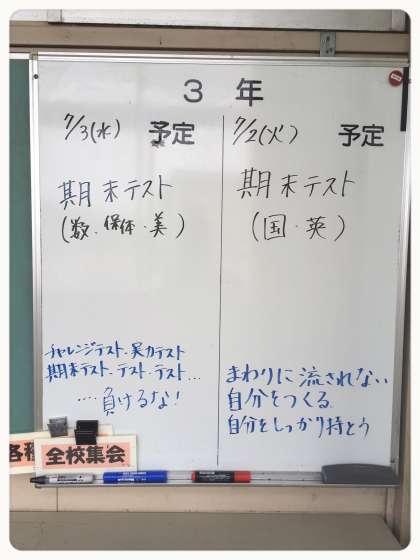 3 年
7/2(火) 予定
期末テスト
(国・英)
まわりに流されない
自分をつくる
自分をしっかり持とう
7/3(水) 予定
期末テスト
(数・保体・美)
チャレンジテスト・実力テスト
期末テスト・テスト・テスト...
....負けるな!
各種
全校集会